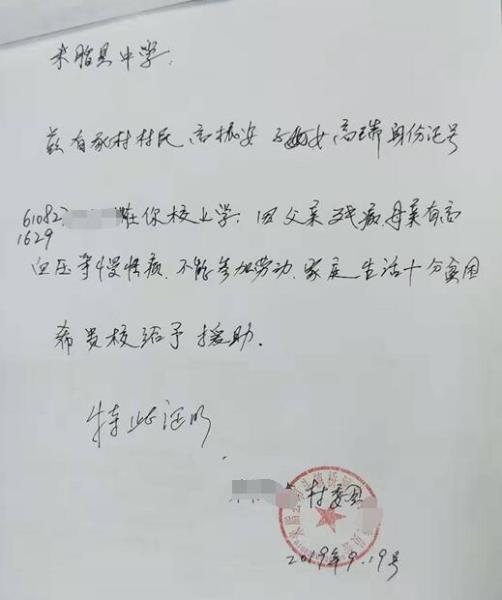 米脂县中学.
兹有我村村民高振安 子女 高瑞身份证号
61082 在你校上学. 因父亲残疾.母亲有高
1629
血压等慢性病.不能参加劳动.家庭生活十分贫困
希贵校给予援助.
特此证明
村委会
2019年9.19号